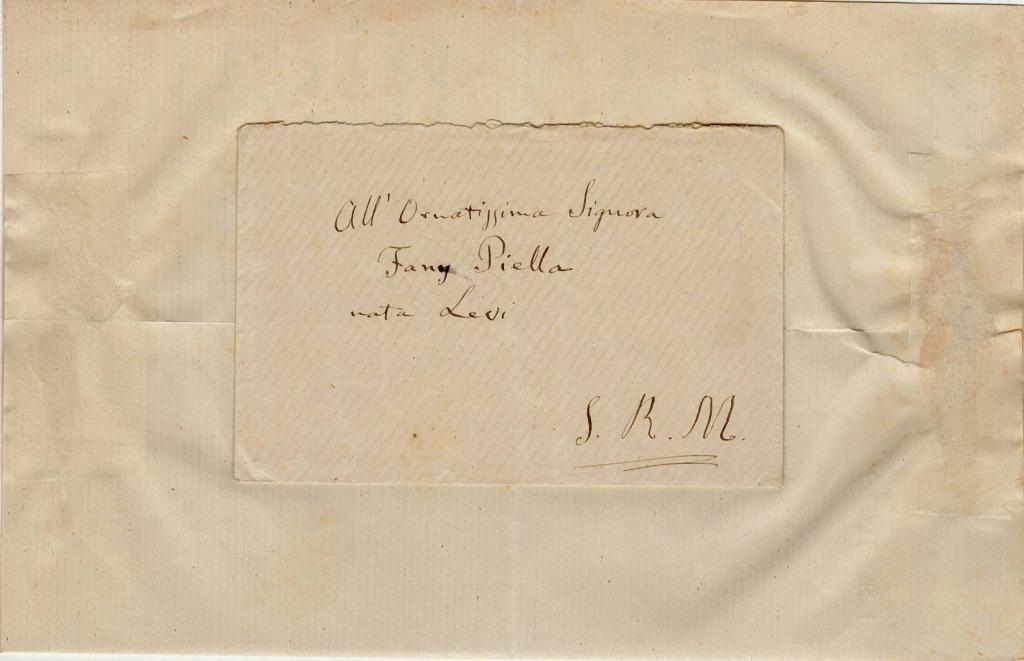 All' Ornatissima Signora
Fany Piella
nata Levi
S. R. M.